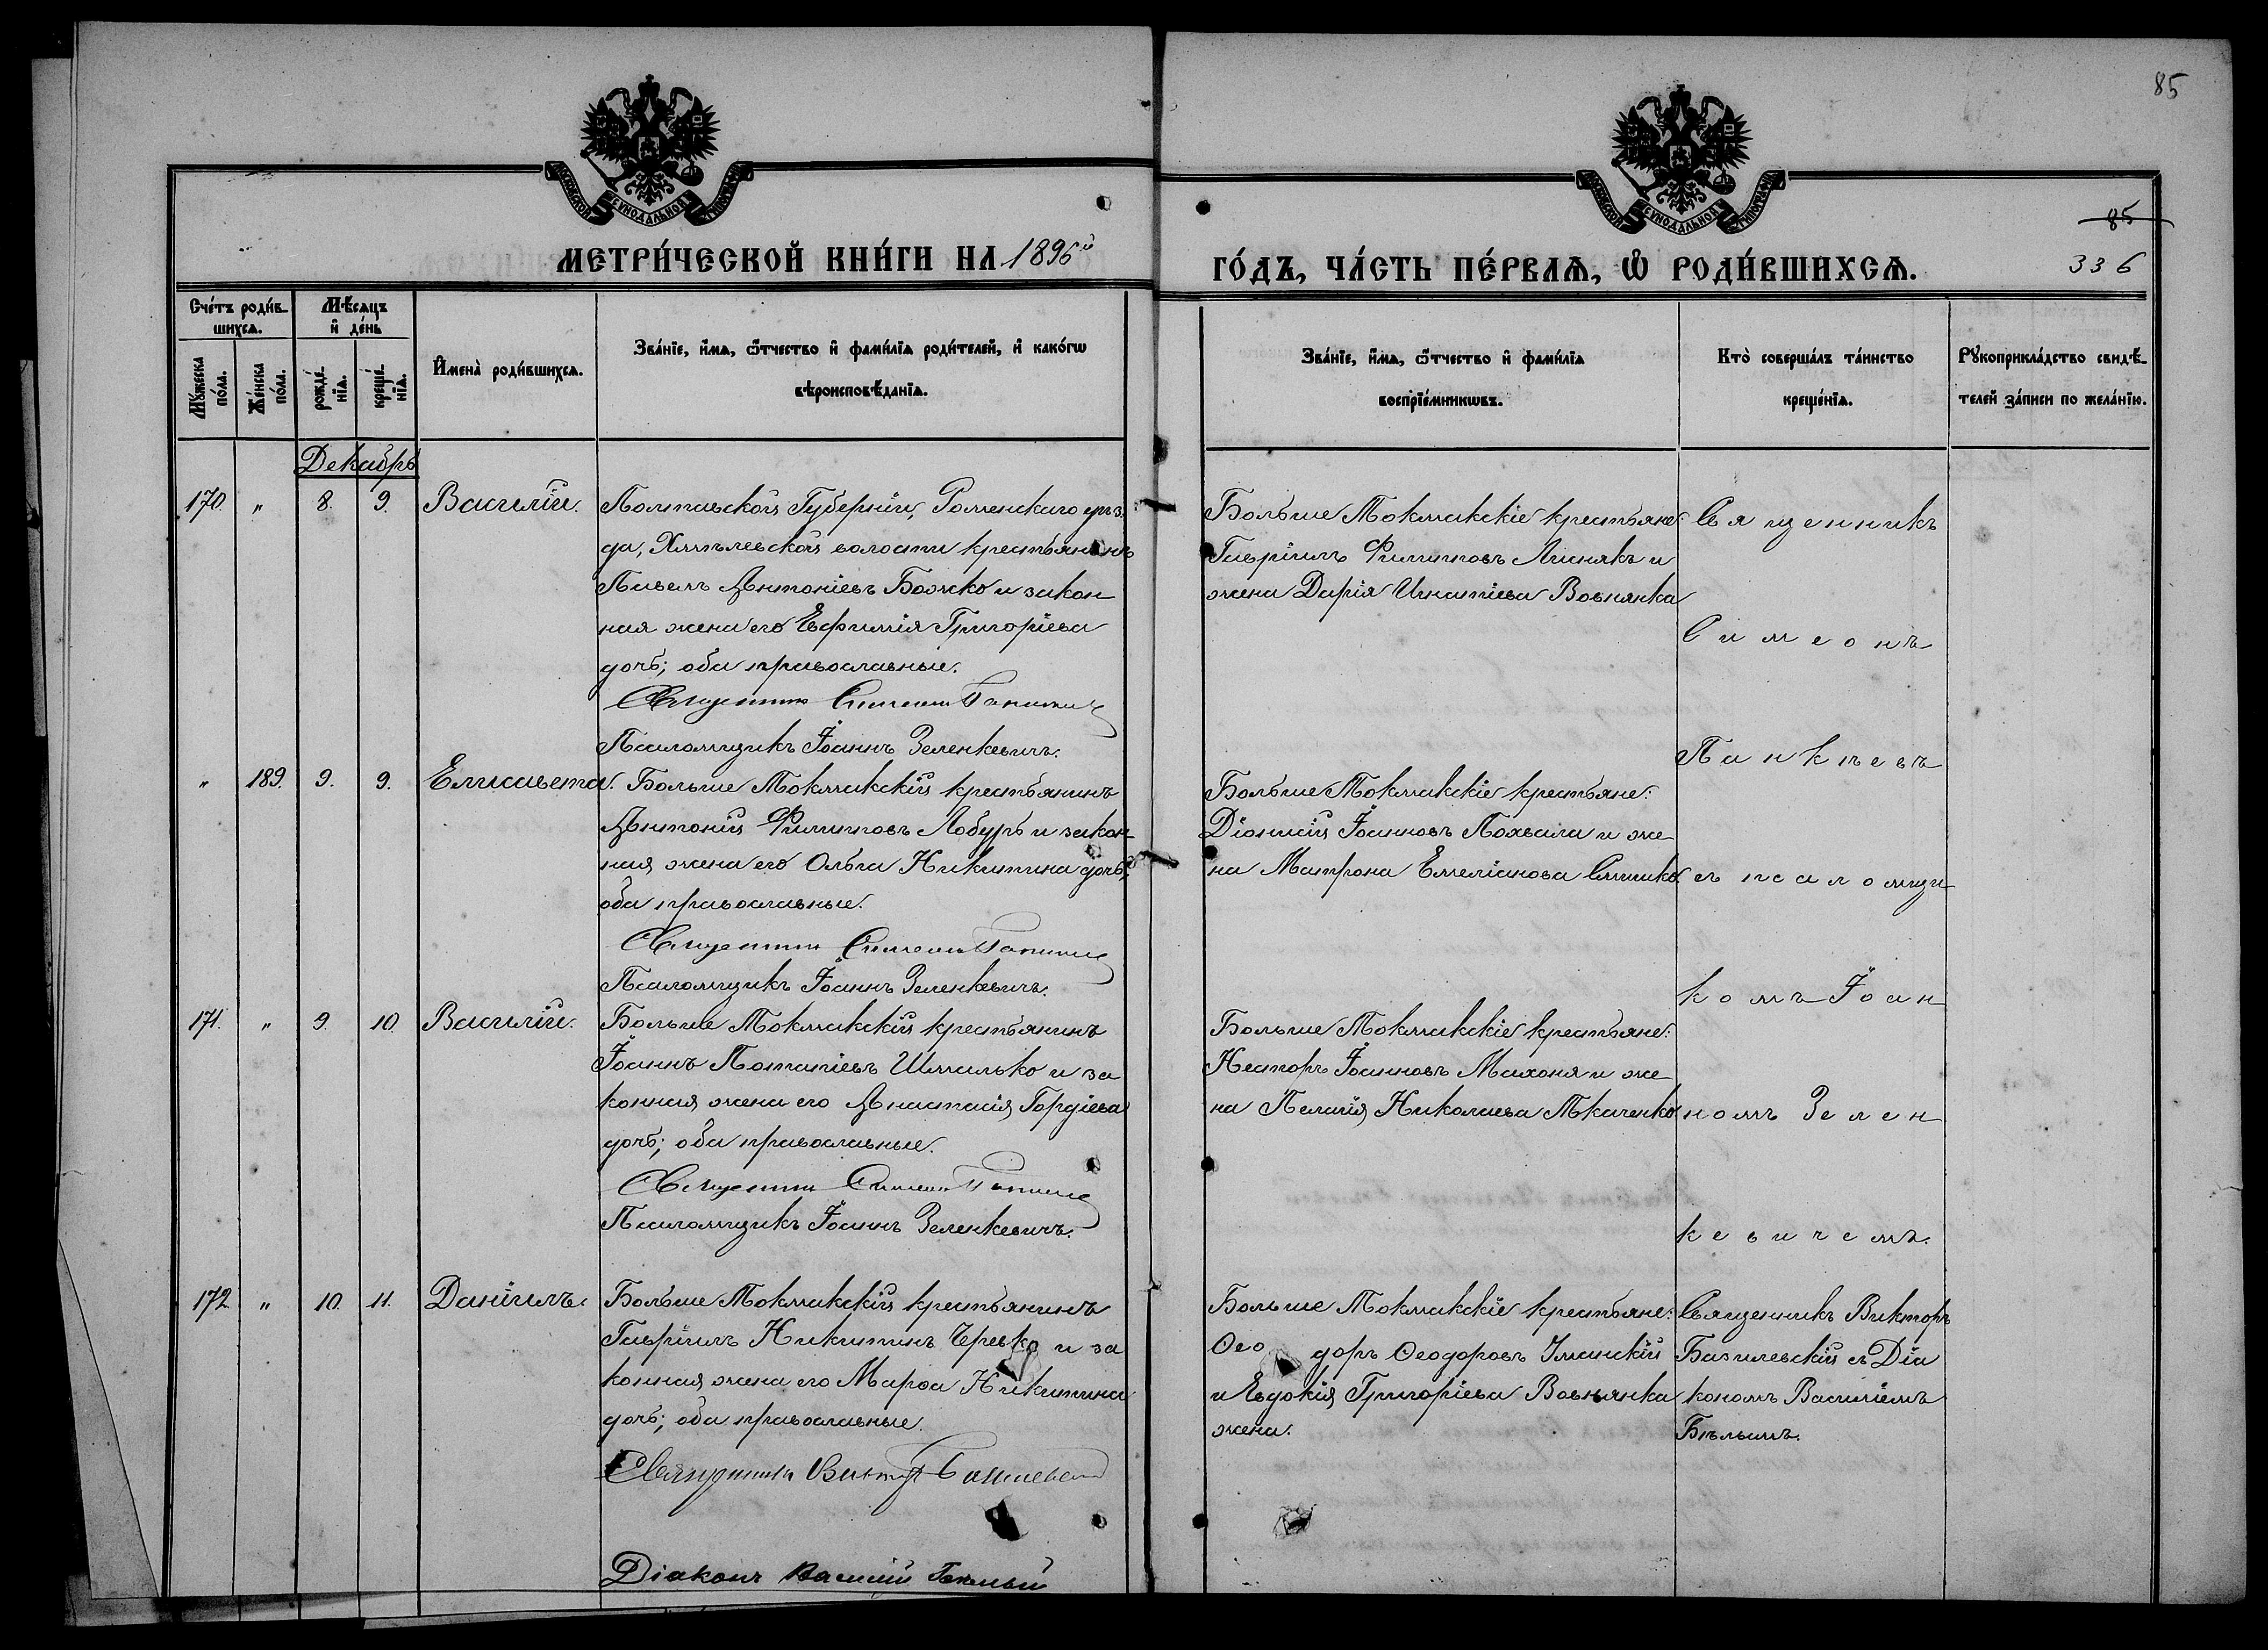 85
МОСКОВСКОЙ СѴНОДАЛЬНОЙ ТИПОГРАФІИ
МОСКОВСКОЙ СѴНОДАЛЬНОЙ ТИПОГРАФІИ
85
336
МЕТРИ́ЧЕСКОЙ КНИ́ГИ НА 1896й
ГО́ДЪ, ЧА́СТЬ ПЕ́РВАѦ, Ѿ РОДИ́ВШИХСѦ.
Сче́тъ роди́в-
шихсѧ.
Мꙋ́жеска
по́ла.
Же́нска
по́ла.
Мѣ́сѧцъ
и҆ де́нь
рожде́-
нїѧ.
креще́-
нїѧ.
И҆мена̀ роди́вшихсѧ.
Зва́нїе, и҆́мѧ, ѻ҆́тчество и҆ фами́лїѧ роди́телей, и҆ како́гѡ
вѣроисповѣ́данїѧ.
Зва́нїе, и҆́мѧ, ѻ҆́тчество и҆ фами́лїѧ
воспрїе́мникѡвъ.
Кто̀ соверша́лъ та́инство
креще́нїѧ.
Рꙋкоприкла́дство свидѣ́-
телей за́писи по жела́нїю.
Декабрь
170. " 8. 9. Василій.
Полтавской Губерніи, Роменскаго уѣз-
да, Хмѣлевской волости крестьянинъ
Павелъ Антоніевъ Божко и закон
ная жена его Евфимія Григоріева
дочь; оба православные.
Священникъ Симеонъ
Псаломщикъ Іоаннъ Зеленкевичъ.
Больше Токмакскіе крестьяне:
Гавріилъ Филипповъ Линякъ и
жена Дарія Игнатіева Вовнянка
Священникъ
Симеонъ
Панкѣевъ
съ псаломщи
комъ Іоан
номъ Зелен
кевичемъ.
" 189. 9. 9. Елисавета.
Больше Токмакскій крестьянинъ
Антоній Филипповъ Лобуръ и закон-
ная жена его Ольга Никитина дочь;
оба православные.
Священникъ Симеонъ
Псаломщикъ Іоаннъ Зеленкевичъ.
Больше Токмакскіе крестьяне:
Діонисій Іоанновъ Похвала и же
на Матрона Емеліанова
171. " 9. 10. Василій.
Больше Токмакскій крестьянинъ
Іоаннъ Потапіевъ Шмалько и за
конная жена его Анастасія Гордіева
дочь; оба православные.
Священникъ Симеонъ
Псаломщикъ Іоаннъ Зеленкевичъ.
Больше Токмакскіе крестьяне:
Несторъ Іоанновъ Махоня и же
на Пелагія Николаева Ткаченко
172 " 10. 11. Даніилъ.
Больше Токмакскій крестьянинъ
Гавріилъ Никитинъ Черевко и за
конная жена его Марѳа Никитина
дочь; оба православные.
Священникъ Викторъ Базилевскій
Діаконъ Василій Бѣлый
Больше Токмакскіе крестьяне:
Ѳео доръ Ѳеодоровъ Уманскій
и Евдокія Григоріева Вовнянка
жена.
Священникъ Викторъ
Базилевскій съ Діа
кономъ Василіемъ
Бѣлымъ.